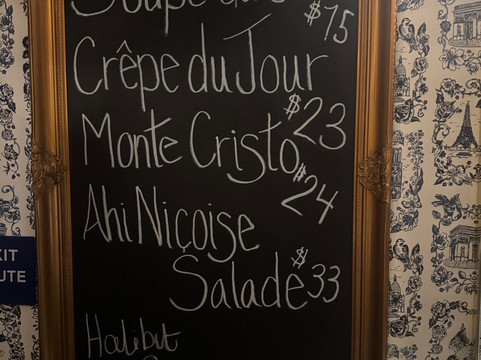 Soupe du
$15
Crêpe du Jour
$23
Monte Cristo
$24
Ahi Niçoise
Salade $33
Halibut